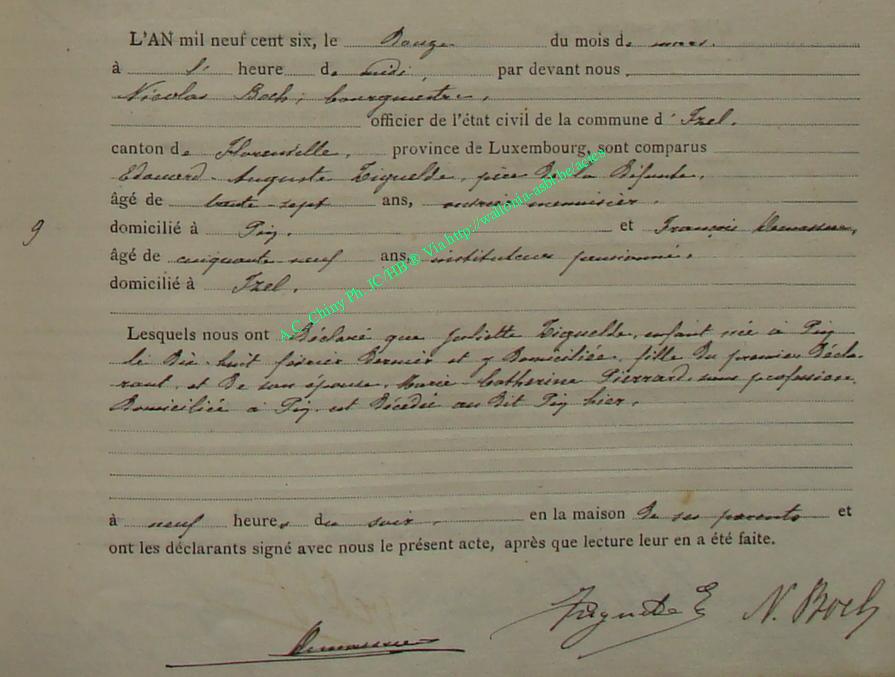 L'AN mil neuf cent six, le Douze du mois de mars.
à heure de midi, par devant nous
Nicolas Boch, bourgmestre,
officier de l'état civil de la commune d'Izel.
canton de Florenville, province de Luxembourg, sont comparus
Edouard Auguste père de la Défunte,
âgé de trente-sept ans, ouvrier menuisier,
domicilié à Pin. et François
9
âgé de cinquante neuf ans, instituteur pensionné,
domicilié à Izel.
A.C. Chiny Ph. JC/HB ® Via http://wallonia-asbl.be/actes
Lesquels nous ont Déclaré que Juliette enfant née à Pin
le Dix-huit février Dernier et y Domiciliée, fille Du premier Décla-
rant, et De son épouse, Marie Catherine Pierrard, sans profession,
Domiciliée à Pin, est Décédée au Dit Pin hier,
à neuf heures du soir, en la maison De ses parents et
ont les déclarants signé avec nous le présent acte, après que lecture leur en a été faite.
N. Boch